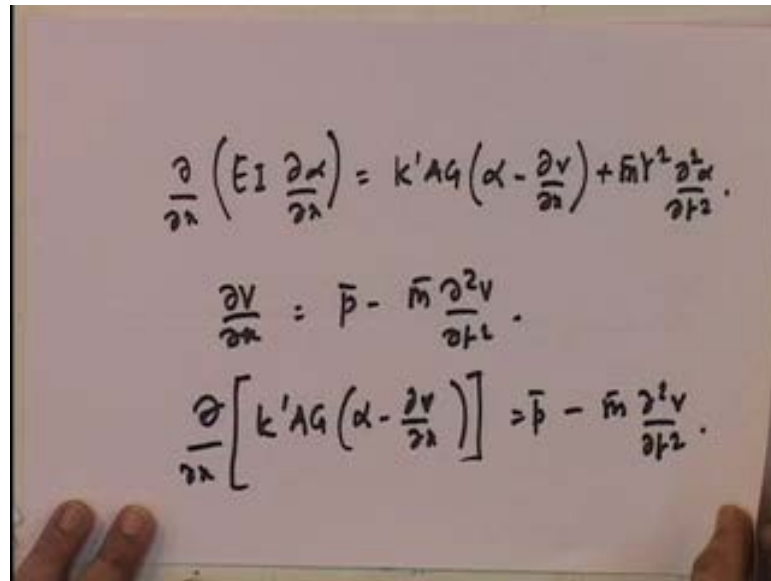 ∂/∂x (EI ∂α/∂x) = k'AG(α - ∂v/∂x) + m̄r² ∂²α/∂t².
∂V/∂x = p̄ - m̄ ∂²v/∂t².
∂/∂x [k'AG(α - ∂v/∂x)] = p̄ - m̄ ∂²v/∂t².